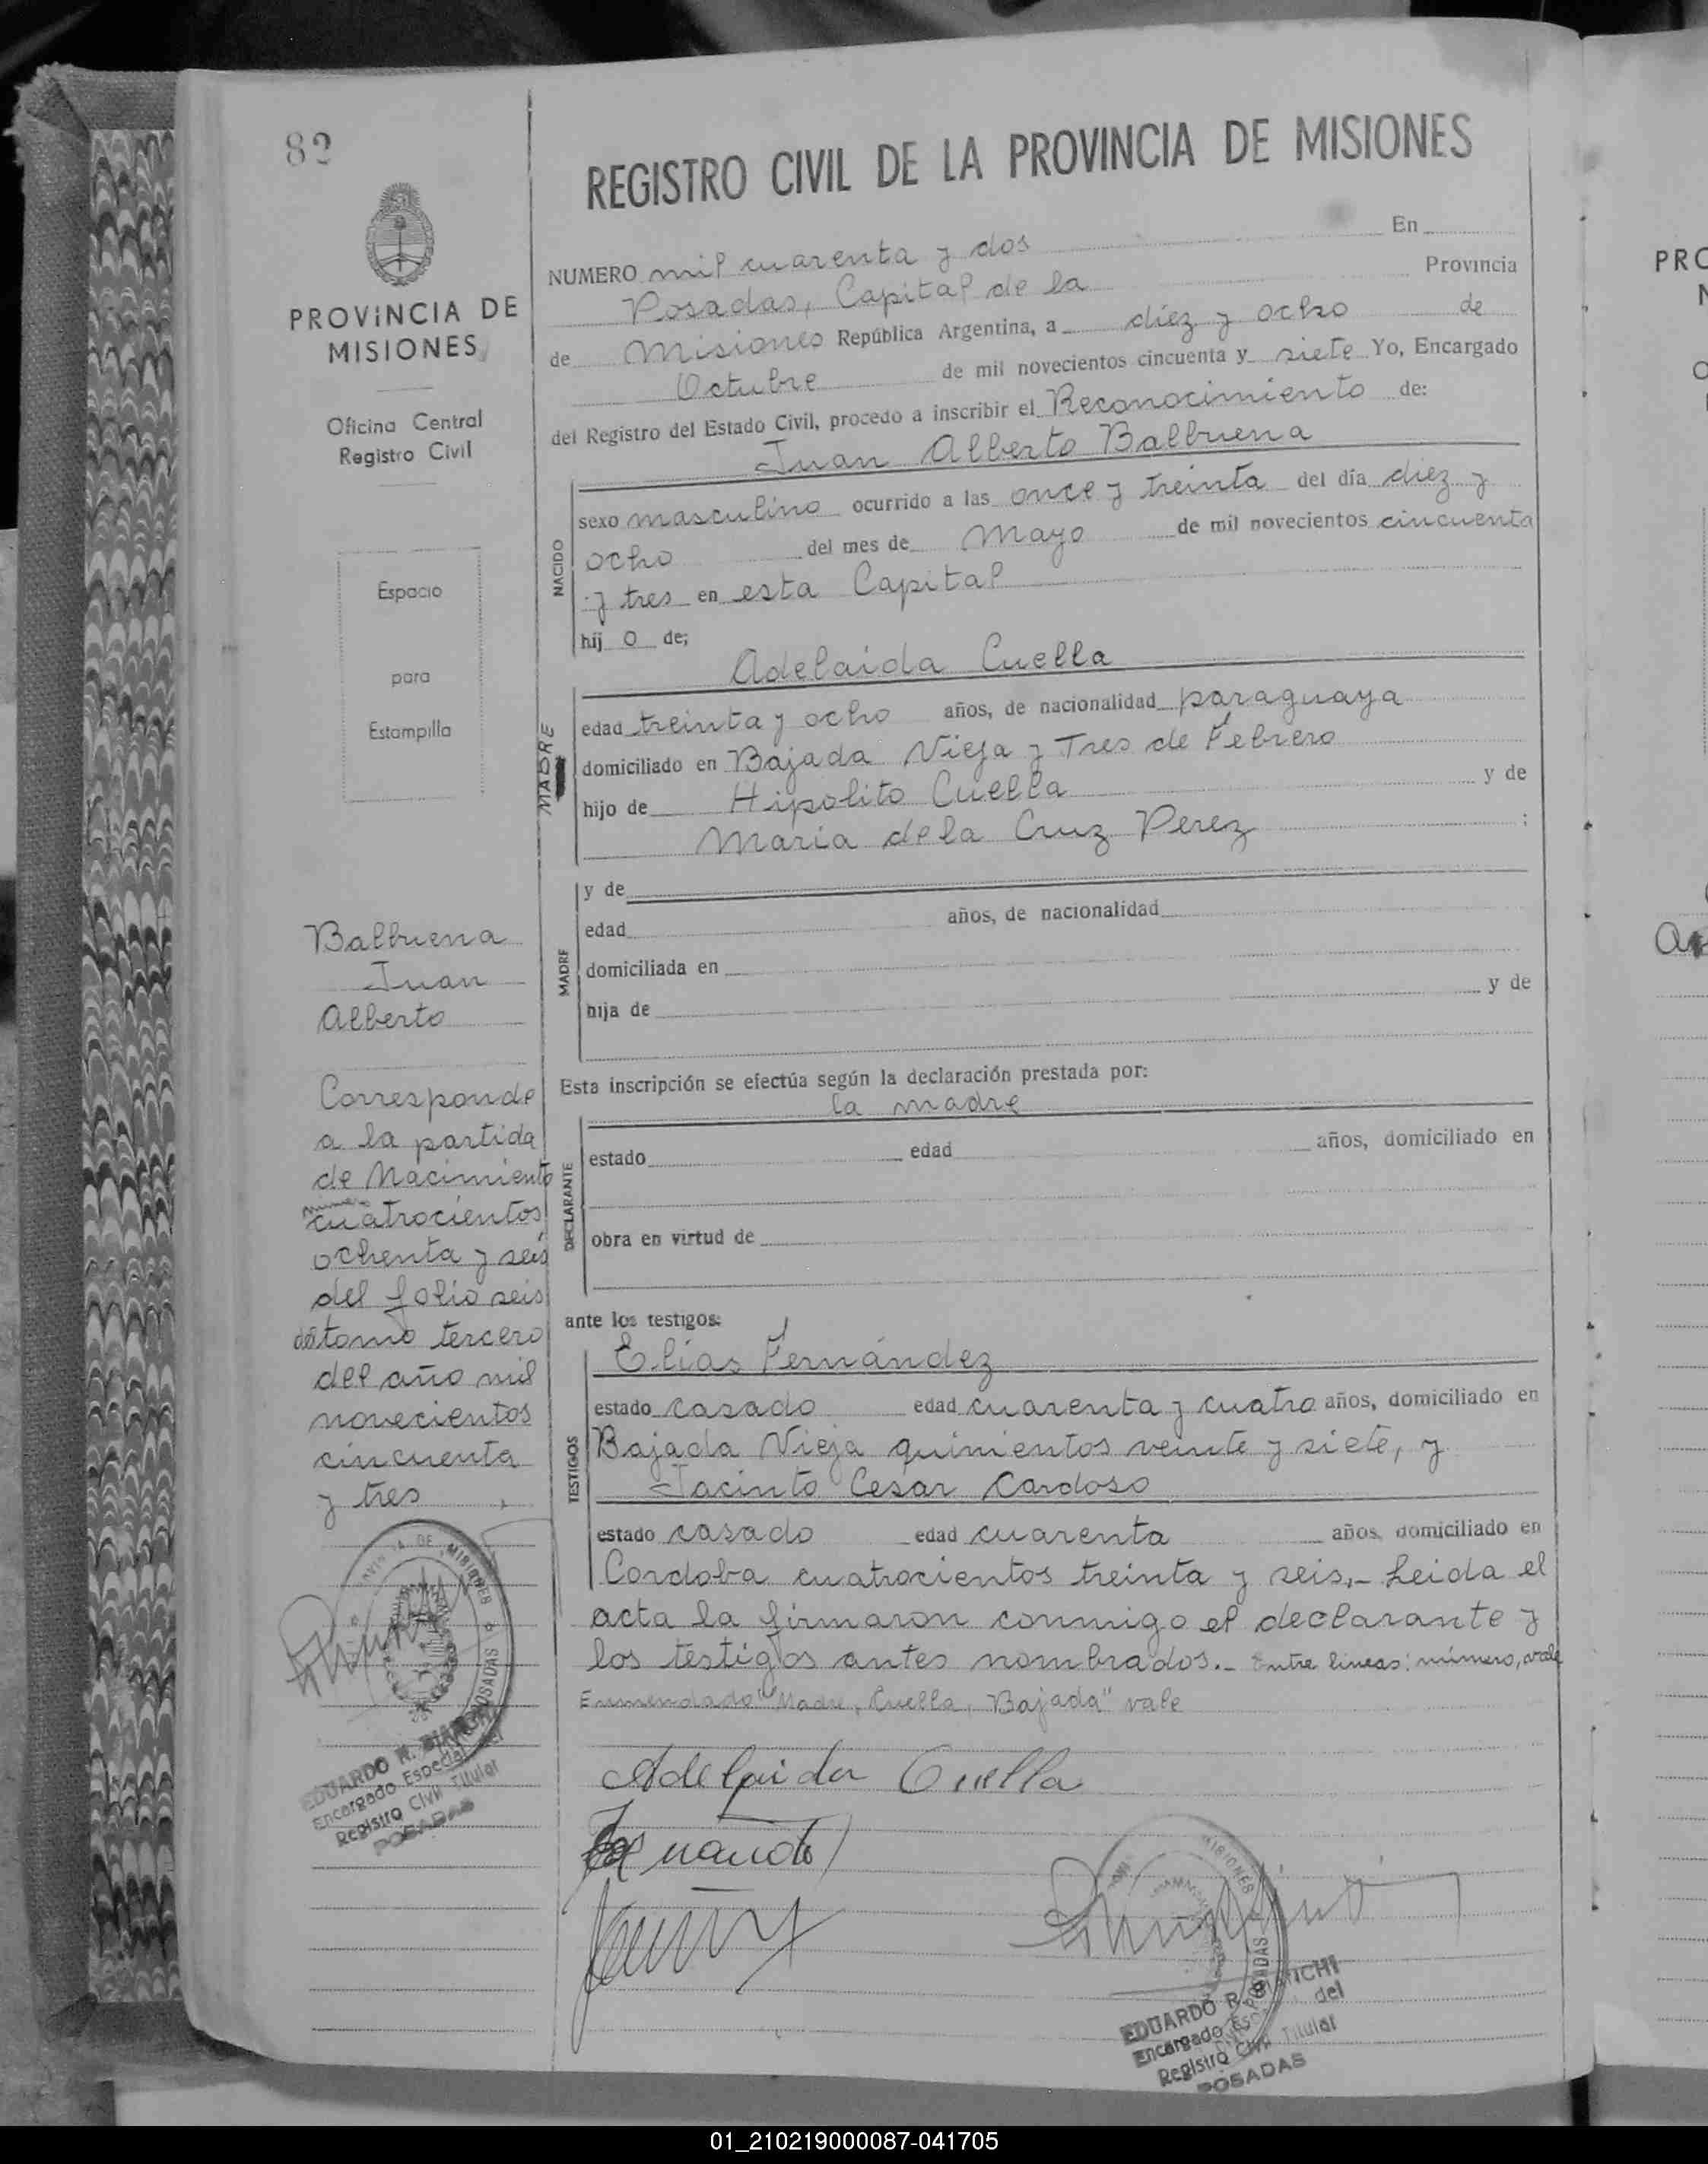 82
PROVINCIA DE
MISIONES
Oficina Central
Registro Civil
Espacio
para
Estampilla
Balbuena
Juan
Alberto
Corresponde
a la partida
de Nacimiento
número
cuatrocientos
ochenta y seis
del folio seis
del tomo tercero
del año mil
novecientos
cincuenta
y tres
MISIONES
POSADAS
EDUARDO R. BIANCHI
Encargado Especial del
Registro Civil Titular
POSADAS
REGISTRO CIVIL DE LA PROVINCIA DE MISIONES
NUMERO mil cuarenta y dos En
Posadas, Capital de la Provincia
de Misiones República Argentina, a diez y ocho de
Octubre de mil novecientos cincuenta y siete Yo, Encargado
del Registro del Estado Civil, procedo a inscribir el Reconocimiento de:
Juan Alberto Balbuena
NACIDO
sexo masculino ocurrido a las once y treinta del día diez y
ocho del mes de Mayo de mil novecientos cincuenta
y tres en esta Capital
hij o de;
Adelaida Cuella
MADRE
edad treinta y ocho años, de nacionalidad paraguaya
domiciliado en Bajada Vieja y Tres de Febrero
hijo de Hipolito Cuella y de
Maria de la Cruz Perez ;
MADRE
y de
edad años, de nacionalidad
domiciliada en
hija de y de
Esta inscripción se efectúa según la declaración prestada por:
la madre
DECLARANTE
estado edad años, domiciliado en
obra en virtud de
ante los testigos:
Elías Fernández
TESTIGOS
estado casado edad cuarenta y cuatro años, domiciliado en
Bajada Vieja quinientos veinte y siete, y
Jacinto Cesar Cardoso
estado casado edad cuarenta años, domiciliado en
Cordoba cuatrocientos treinta y seis,- Leida el
acta la firmaron conmigo el declarante y
los testigos antes nombrados.- Entre lineas: número, vale
Enmendado "Madre, Cuella, Bajada" vale
Adelaida Cuella
MISIONES
POSADAS
EDUARDO R. BIANCHI
Encargado Es del
Registro Civil Titular
POSADAS
PRO
01_210219000087-041705